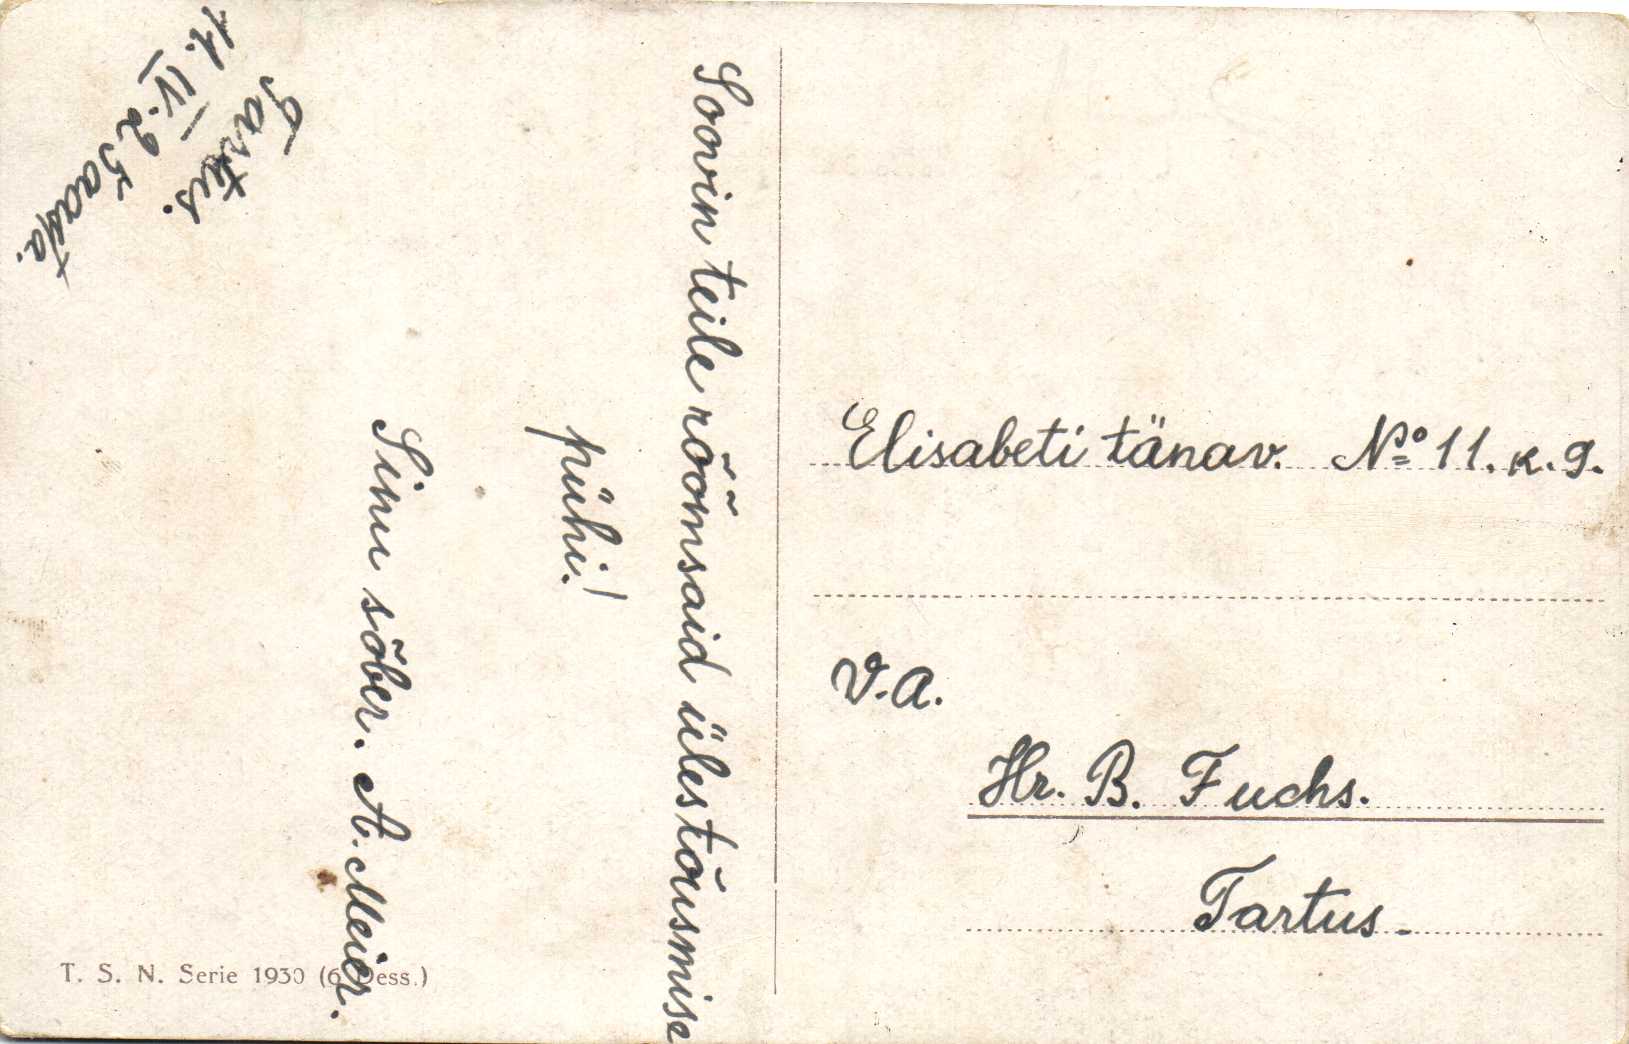 Tartus.
11. IV. 25 aasta.
Soovin teile rõõmsaid ülestõusmise
pühi!
Sinu sõber. A. Meier.
T. S. N. Serie 1930 (6 Dess.)
Elisabeti tänav. Nº 11. k. 9.
V. A.
Hr. B. Fuchs.
Tartus.